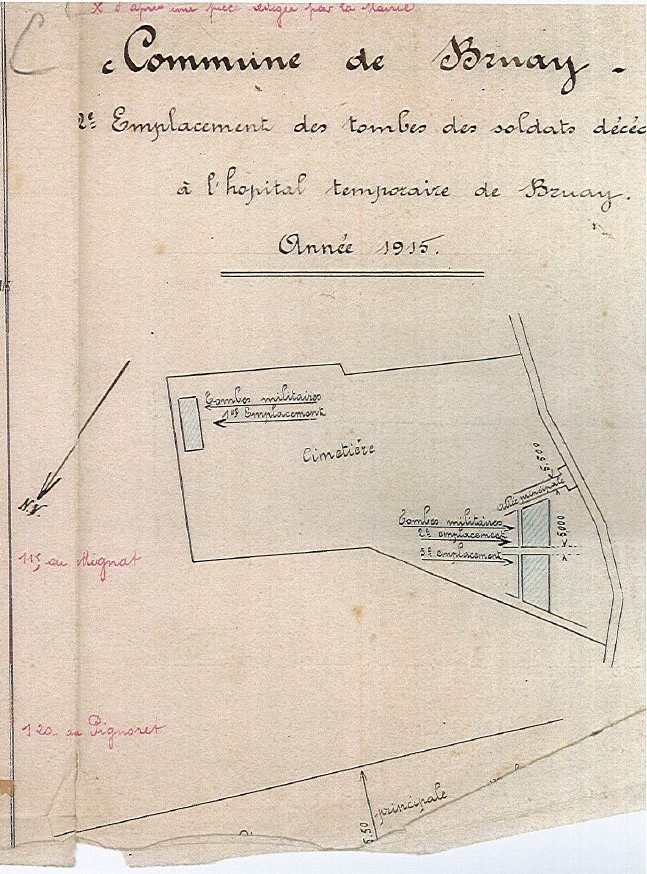 X d'après une pièce rédigée par la Mairie
C
Commune de Bruay.
2e Emplacement des tombes des soldats décéd
à l'hopital temporaire de Bruay.
Année 1915.
Tombes militaires
1er Emplacement
Cimetière
5,500
allée principale
Tombes militaires
2e emplacement
5000
3e emplacement
N.
115 au Mignat
120 au Pignoret
principale
5.50